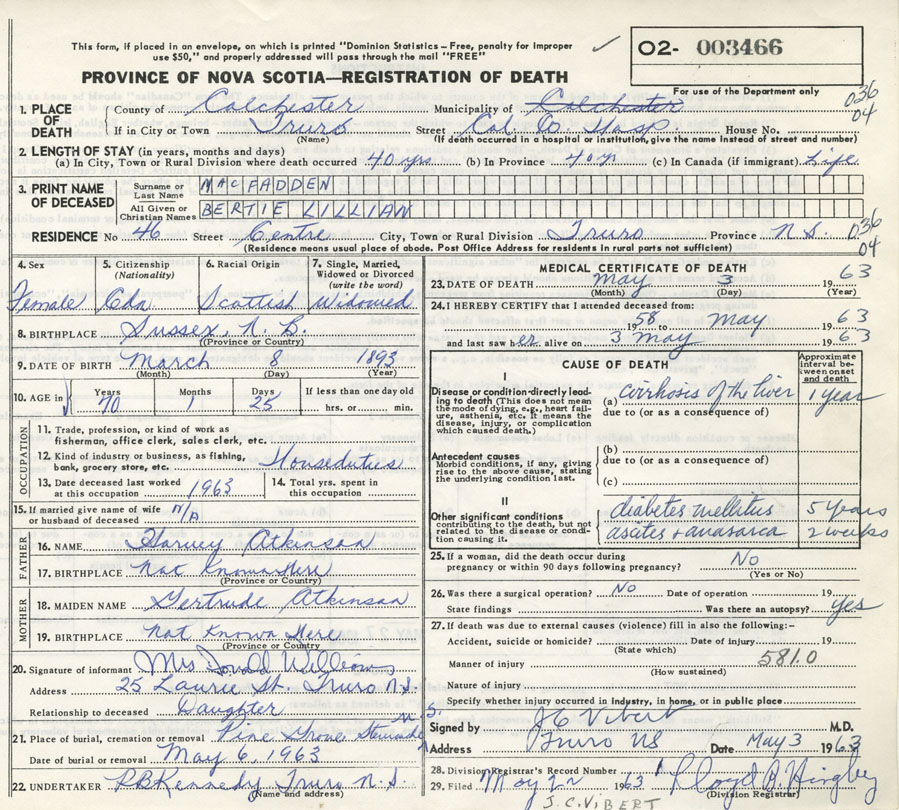 This form, if placed in an envelope, on which is printed "Dominion Statistics – Free, penalty for improper
use $50," and properly addressed will pass through the mail "FREE"
✓
O2- 003466
PROVINCE OF NOVA SCOTIA—REGISTRATION OF DEATH
For use of the Department only
1. PLACE OF DEATH
County of Colchester Municipality of Colchester 036
If in City or Town Truro Street Col. Co. Hosp. House No. 04
(Name) (If death occurred in a hospital or institution, give the name instead of street and number)
2. LENGTH OF STAY (in years, months and days)
(a) In City, Town or Rural Division where death occurred 40 yrs (b) In Province 40 yr (c) In Canada (if immigrant) Life
3. PRINT NAME OF DECEASED
Surname or Last Name MACFADDEN
All Given or Christian Names BERTIE LILLIAN
RESIDENCE No 46 Street Centre City, Town or Rural Division Truro Province N.S. 036
04
(Residence means usual place of abode. Post Office Address for residents in rural parts not sufficient)
4. Sex Female
5. Citizenship (Nationality) Cdn
6. Racial Origin Scottish
7. Single, Married, Widowed or Divorced (write the word) Widowed
8. BIRTHPLACE Sussex, N.B.
(Province or Country)
9. DATE OF BIRTH March 8 1893
(Month) (Day) (Year)
10. AGE in Years 70 Months 1 Days 25 If less than one day old
hrs. or min.
OCCUPATION
11. Trade, profession, or kind of work as
fisherman, office clerk, sales clerk, etc.
12. Kind of industry or business, as fishing,
bank, grocery store, etc. Houseduties
13. Date deceased last worked
at this occupation 1963
14. Total yrs. spent in
this occupation
15. If married give name of wife
or husband of deceased N/A
FATHER
16. NAME Harvey Atkinson
17. BIRTHPLACE Not Known Here
(Province or Country)
MOTHER
18. MAIDEN NAME Gertrude Atkinson
19. BIRTHPLACE Not Known Here
(Province or Country)
20. Signature of informant Mrs Donald Williams
Address 25 Laurie St. Truro N.S.
Relationship to deceased Daughter
21. Place of burial, cremation or removal Pine Grove N.S.
Date of burial or removal May 6, 1963
22. UNDERTAKER RBKennedy Truro N.S.
(Name and address)
MEDICAL CERTIFICATE OF DEATH
23. DATE OF DEATH May 3 19 63
(Month) (Day) (Year)
24. I HEREBY CERTIFY that I attended deceased from:
19 58 to May 19 63
and last saw her alive on 3 May 19 63
CAUSE OF DEATH
Approximate interval between onset and death
I
Disease or condition directly leading to death (This does not mean the mode of dying, e.g., heart failure, asthenia, etc. It means the disease, injury, or complication which caused death.)
(a) cirrhosis of the liver 1 year
due to (or as a consequence of)
Antecedent causes
Morbid conditions, if any, giving rise to the above cause, stating the underlying condition last.
(b)
due to (or as a consequence of)
(c)
II
Other significant conditions contributing to the death, but not related to the disease or condition causing it.
diabetes mellitus 5 years
ascites + anasarca 2 weeks
25. If a woman, did the death occur during
pregnancy or within 90 days following pregnancy? No
(Yes or No)
26. Was there a surgical operation? No Date of operation 19
State findings Was there an autopsy? yes
27. If death was due to external causes (violence) fill in also the following:-
Accident, suicide or homicide? Date of injury 19
(State which)
Manner of injury 581.0
(How sustained)
Nature of injury
Specify whether injury occurred in industry, in home, or in public place
Signed by JC Vibert M.D.
Address Truro NS Date May 3 1963
28. Division Registrar's Record Number
29. Filed May 1963 Lloyd
(Division Registrar)
J.C. VIBERT